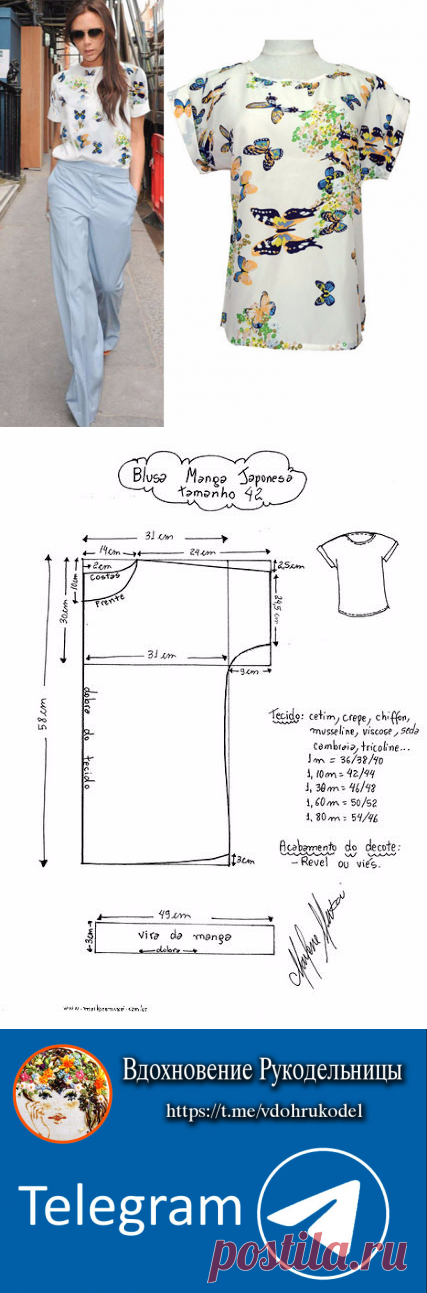 Blusa Manga Japonesa
tamanho 42
31 cm
14cm
24 cm
2cm
Costas
10cm
Frente
2,5cm
24,5 cm
30cm
31 cm
9cm
58 cm
dobra do tecido
3cm
Tecido: cetim, crepe, chiffon,
musseline, viscose, seda
cambraia, tricoline...
1m = 36/38/40
1,10m = 42/44
1,30m = 46/48
1,60m = 50/52
1,80m = 54/46
Acabamento do decote:
- Revel ou viés.
49cm
3cm
vira da manga
dobra
Вдохновение Рукодельницы
https://t.me/vdohrukodel
Telegram
postila.ru